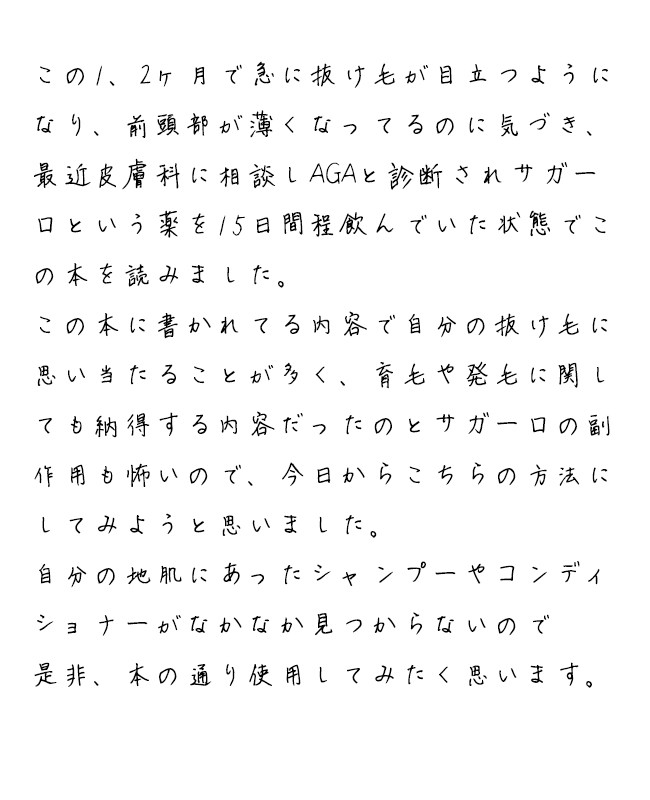 この1、2ヶ月で急に抜け毛が目立つように
なり、前頭部が薄くなってるのに気づき、
最近皮膚科に相談しAGAと診断されサガー
ロという薬を15日間程飲んでいた状態でこ
の本を読みました。
この本に書かれてる内容で自分の抜け毛に
思い当たることが多く、育毛や発毛に関し
ても納得する内容だったのとサガーロの副
作用も怖いので、今日からこちらの方法に
してみようと思いました。
自分の地肌にあったシャンプーやコンディ
ショナーがなかなか見つからないので
是非、本の通り使用してみたく思います。